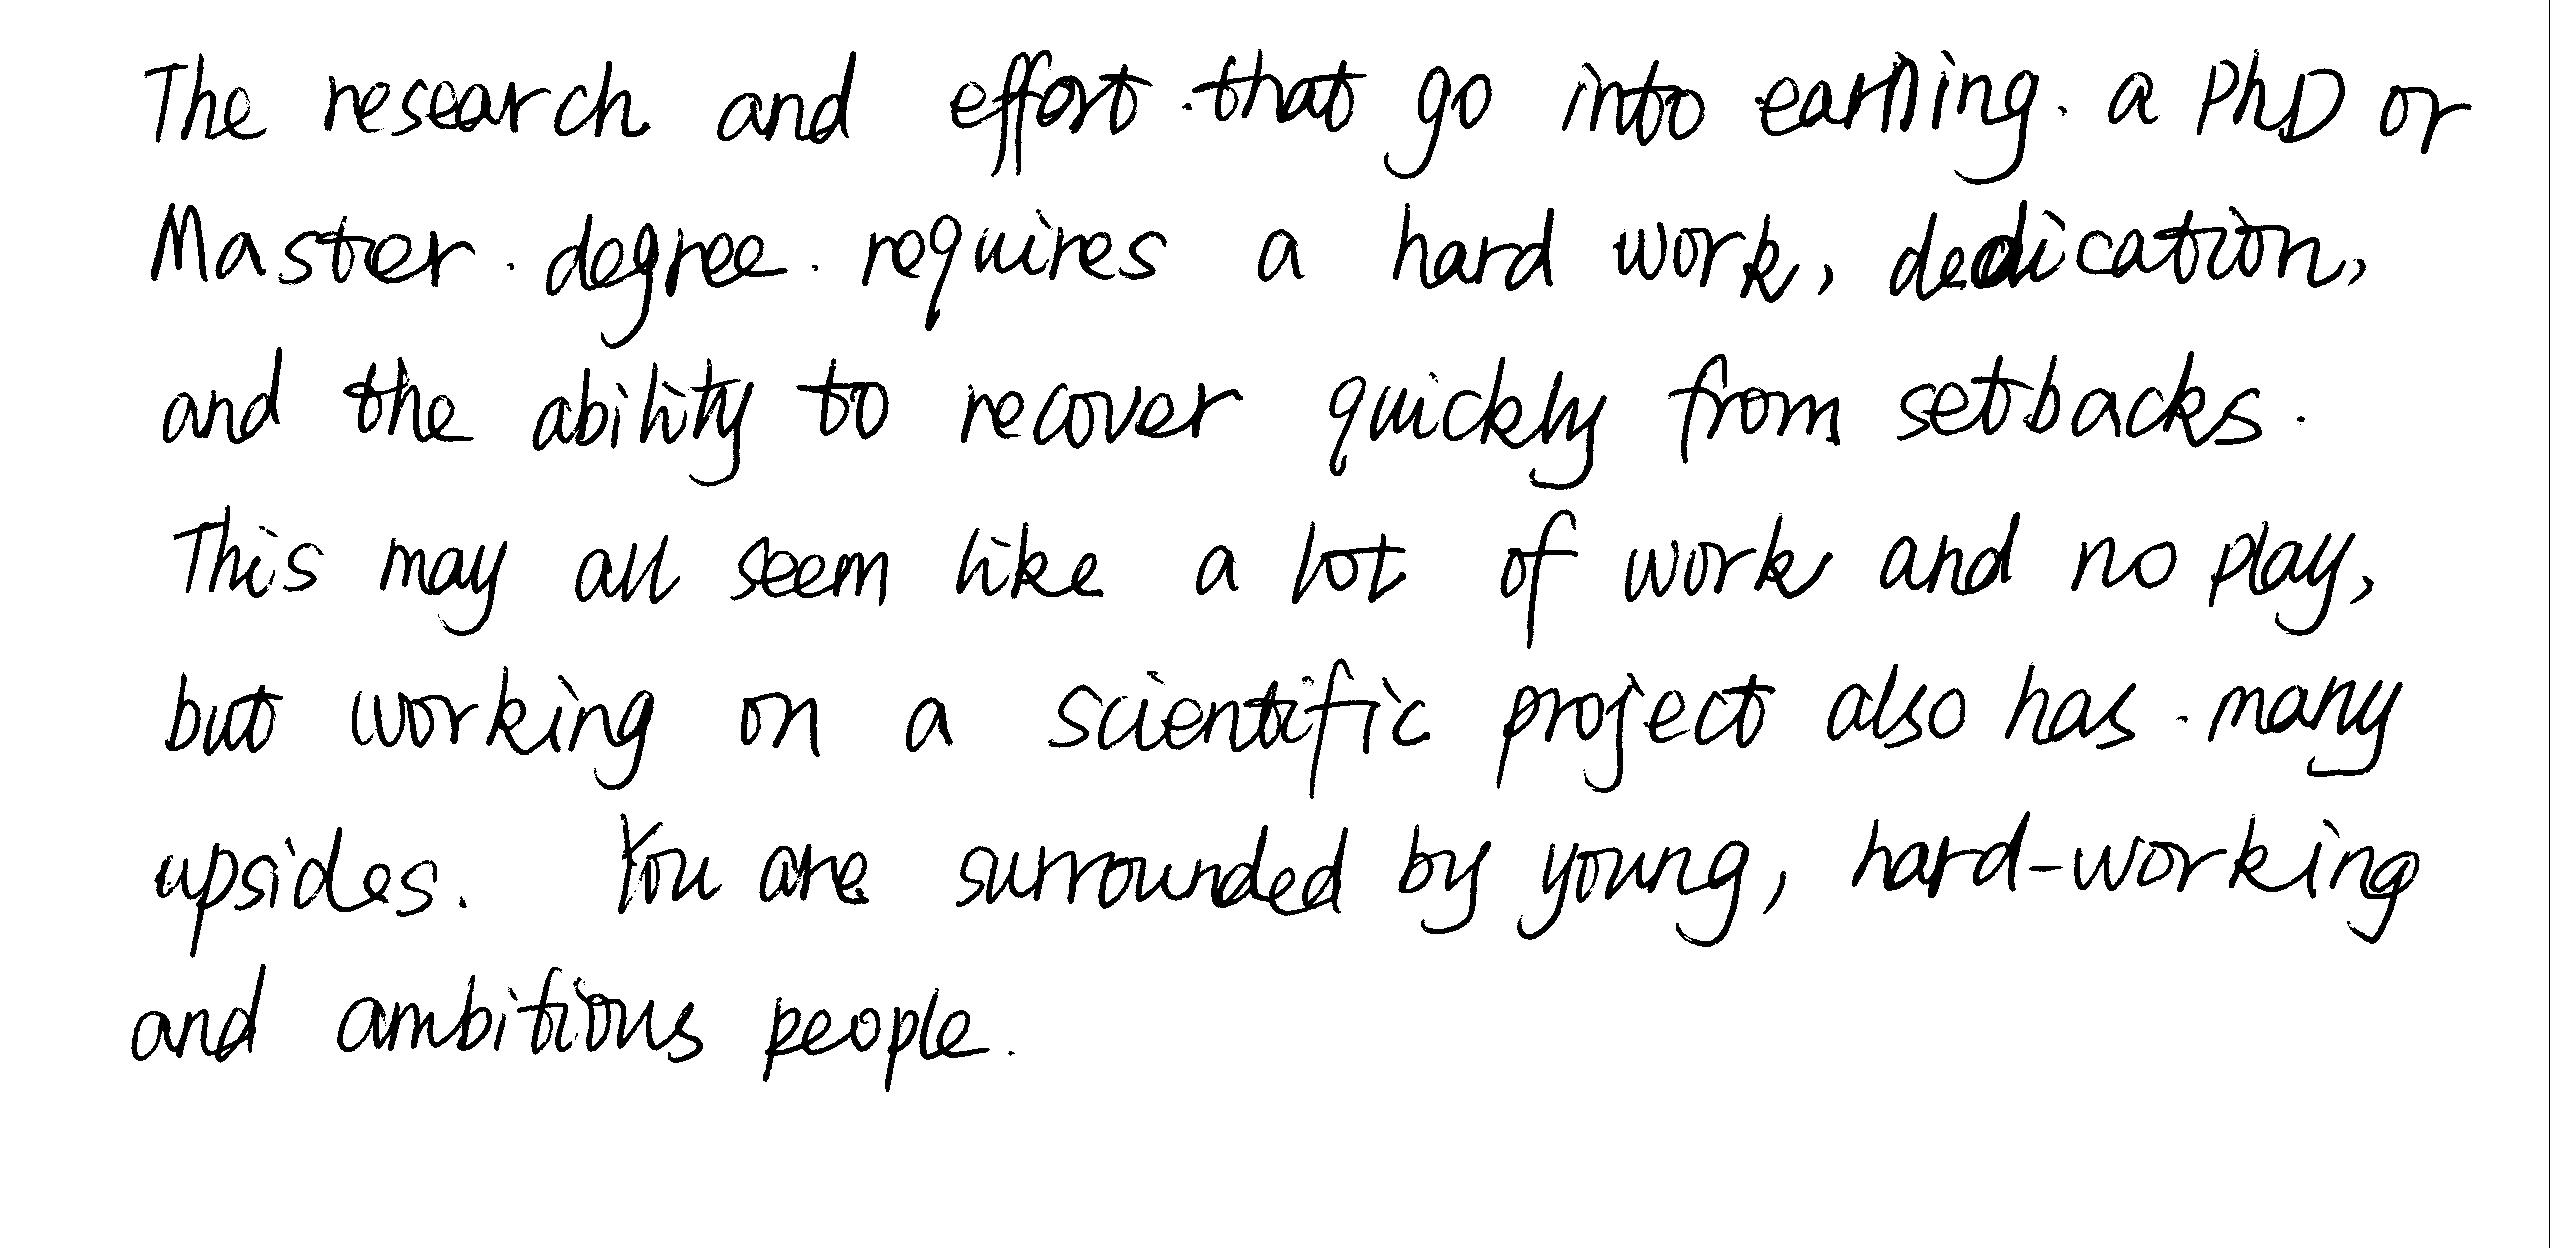 The research and effort that go into earning a PhD or
Master degree requires a hard work, dedication,
and the ability to recover quickly from setbacks.
This may all seem like a lot of work and no play,
but working on a scientific project also has many
upsides. You are surrounded by young, hard-working
and ambitious people.